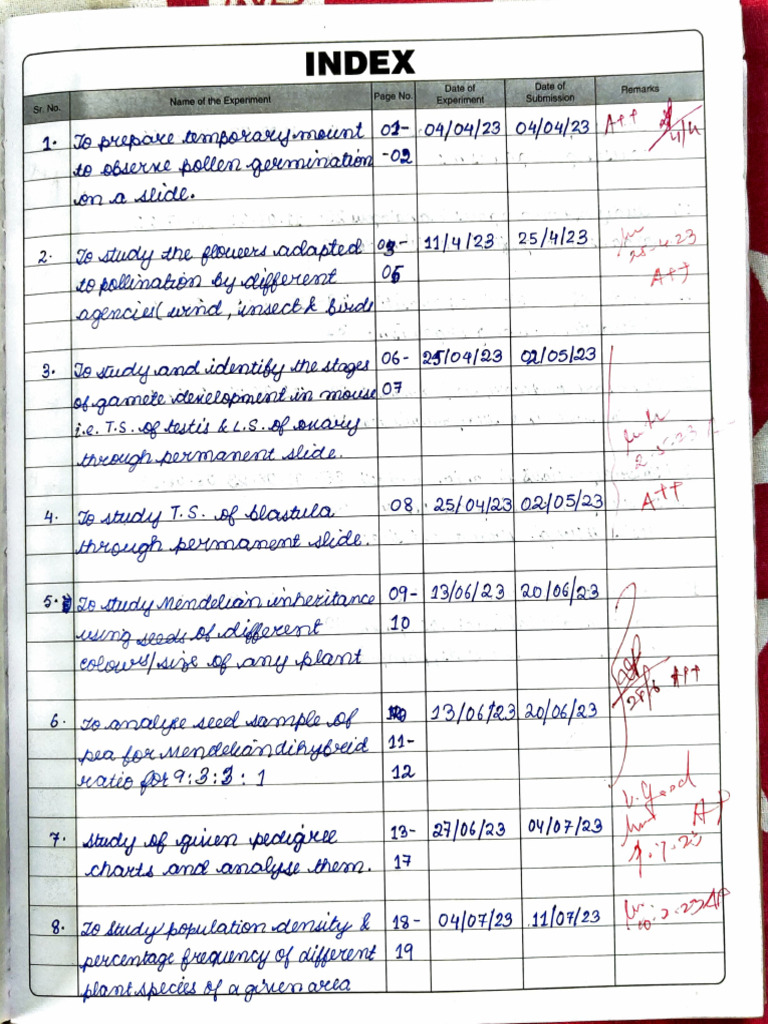 INDEX
Sr. No. Name of the Experiment Page No. Date of Experiment Date of Submission Remarks
1. To prepare temporary mount 01- 04/04/23 04/04/23 A++ 4/4
to observe pollen germination -02
on a slide.
2. To study the flowers adapted 03- 11/4/23 25/4/23 25.4.23
to pollination by different 05 A++
agencies (wind, insect & birds
3. To study and identify the stages 06- 25/04/23 02/05/23
of gamete development in mouse 07
i.e. T.S. of testis & L.S. of ovary
through permanent slide. 2.5.23
4. To study T.S. of blastula 08 25/04/23 02/05/23 A++
through permanent slide.
5. To study Mendelian inheritance 09- 13/06/23 20/06/23
using seeds of different 10
colours/size of any plant A++
6. To analyse seed sample of 13/06/23 20/06/23
pea for Mendelian dihybrid 11-
ratio for 9:3:3:1 12 V. Good
7. Study of given pedigree 13- 27/06/23 04/07/23 A+
charts and analyse them. 17
8. To study population density & 18- 04/07/23 11/07/23 A+
percentage frequency of different 19
plant species of a given area